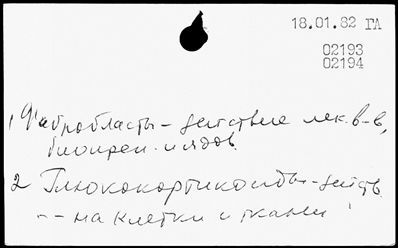 18.01.82 ГЛ
02193
02194
1 Фибробласты – действие лек. в-в,
биопреп. и ядов.
2 Глюкокортикоиды – действ.
-- на клетки и ткани